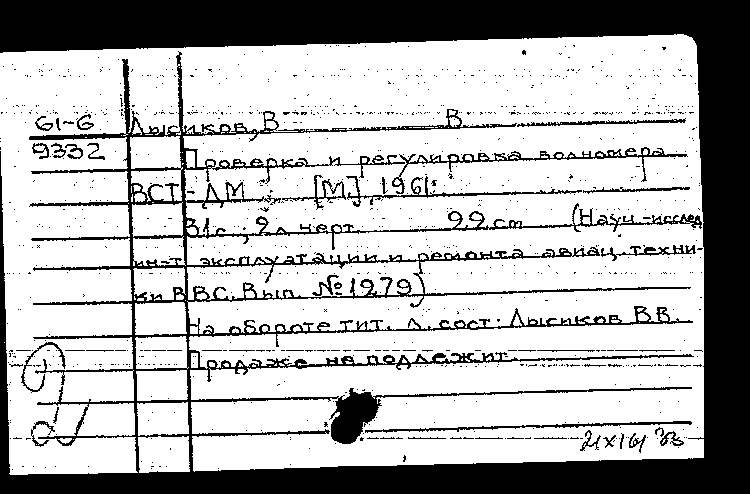 61-6 Лысиков, В. В.
9332 Проверка и регулировка волномера
ВСТ-ДМ. [М.], 1961.
31с.; 2 л. черт. 22 cm (Науч.-исслед.
ин-т эксплуатации и ремонта авиац. техни-
ки ВВС. Вып. №1279)
На обороте тит. л. сост: Лысиков В.В.
Продаже не подлежит
2
21 X 61